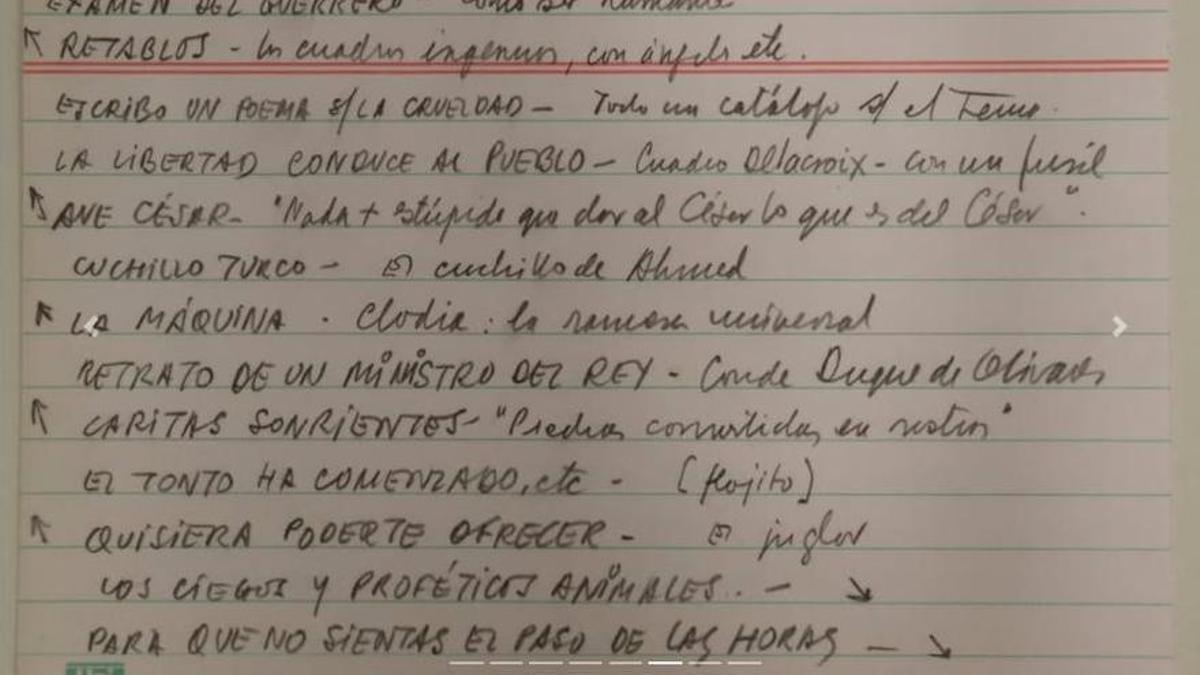 EXAMEN DEL GUERRERO - como ser humano
RETABLOS - los cuadros ingenuos, con ángeles etc.
ESCRIBO UN POEMA S/LA CRUELDAD - Todo un catálogo s/ el tema.
LA LIBERTAD CONDUCE AL PUEBLO - Cuadro Dellacroix - con un fusil
AVE CÉSAR - "Nada + estúpido que dar al César lo que es del César".
CUCHILLO TURCO - El cuchillo de Ahmed
LA MÁQUINA. Clodia: la ramera universal
RETRATO DE UN MINISTRO DEL REY - Conde Duque de Olivares
CARITAS SONRIENTES - "Piedras convertidas en rostros"
EL TONTO HA COMENZADO, etc - (flojito)
QUISIERA PODERTE OFRECER - El juglar
LOS CIEGOS Y PROFÉTICOS ANIMALES. -
PARA QUE NO SIENTAS EL PASO DE LAS HORAS -